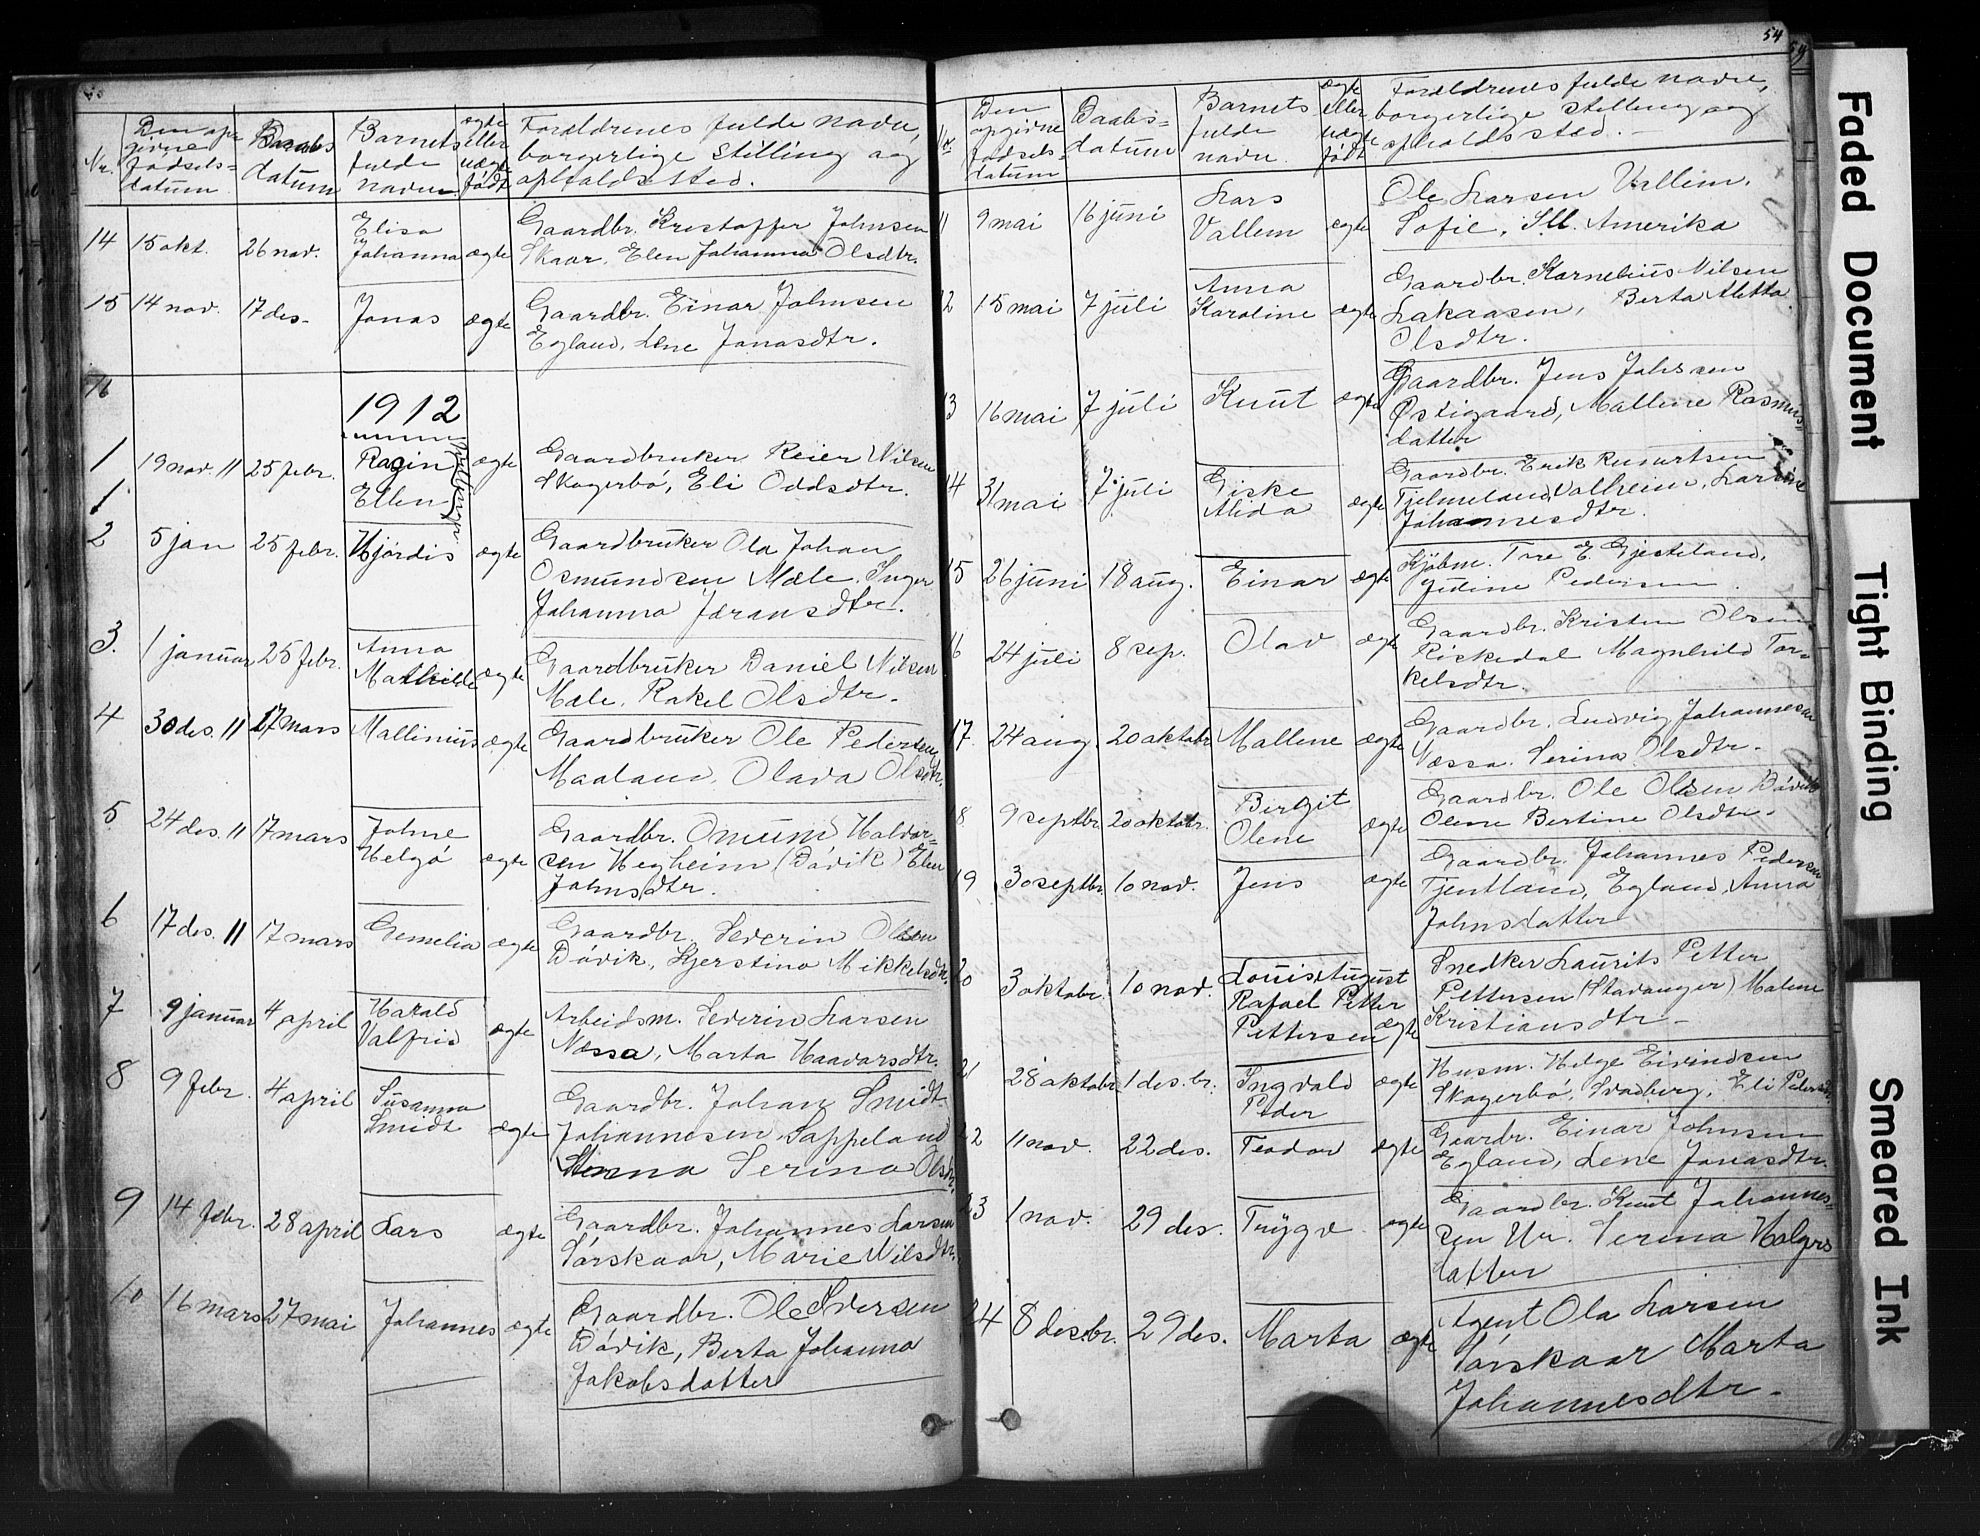 Nr.
Den op-
givne
fødsels-
datum
Daabs
datum
Barnets
fulde
navn
ægte
eller
uægte
født
Foræeldrenes fulde navn,
borgerlige stilling og
opholdssted.
14 15 okt. 26 nov. Elisa
Johanna ægte Gaardbr. Kristoffer Johnsen
Skaar, Elen Johanna Olsdtr.
15 14 nov. 17 des. Jonas ægte Gaardbr. Einar Johnsen
Egland, Lene Jonasdtr.
16
1912
1 19 nov. 11 25 febr. Ragin
Ellen ægte Gaardbruker Reier Nilsen
Skogerbö, Eli Oddsdtr.
1
2 5 jan 25 febr. Hjördis ægte Gaardbruker Ola Johan
Osmundsen Mæle. Inger
Johanna Jøransdtr.
3. 1 januar 25 febr. Anna
Mathilde ægte Gaardbruker Daniel Nilsen
Mæle. Rakel Olsdtr.
4 30 des. 11 17 mars Mallinius ægte Gaardbruker Ole Pedersen
Maaland, Olava Olsdtr.
5. 24 des. 11 17 mars Johne
Helgö ægte Gaardbr. Omund Halvor-
sen Hegheim (Dövik) Elen
Johnsdtr.
6 17 des. 11 17 mars Gemelia ægte Gaardbr. Severin Olsen
Dövik, Kjerstina Mikkelsdtr.
7 9 januar 4 april Harald
Valfrid ægte Arbeidsm. Severin Larsen
Næssa, Marta Haavarsdtr.
8 9 febr. 4 april Susanna
Smidt ægte Gaardbr. Johan Smidt
Johannesen Sappeland
Anna Serina Olsdtr.
9 14 febr. 28 april Lars ægte Gaardbr. Johannes Larsen
Sörskaar, Marie Nilsdtr.
10 16 mars 27 mai Johannes ægte Gaardbr. Ole Iversen
Dövik, Berta Johanna
Jakobsdatter
54
Nr
Den
opgivne
fødsels-
datum
Daabs-
datum
Barnets
fulde
navn
ægte
eller
uægte
født
Forældrenes fulde navn,
borgerlige stilling og
opholdssted.
11 9 mai 16 juni Lars
Vallem ægte Ole Larsen Vallem.
Sofie, Ill. Amerika
12 15 mai 7 juli Anna
Karoline ægte Gaardbr. Kornelius Nilsen
Lakaasen, Berta Aletta
Olsdtr.
13 16 mai 7 juli Knut ægte Gaardbr. Jens Johnsen
Östigaard, Mallene Rasmus-
datter
14 31 mai 7 juli Giske
Alida ægte Gaardbr. Erik
Tjelmeland, Valheim, Larine
Johannesdtr.
15 26 juni 18 aug. Einar ægte Kjöbm. Tore E. Gjesteland,
Judine Pedersen
16 24 juli 8 sep. Olav ægte Gaardbr. Kristen Olsen
Riskedal Magnhild Tor-
kelsdtr.
17. 24 aug. 20 oktobr Mallene ægte Gaardbr. Ludvig Johannesen
Næssa. Serina Olsdtr.
18 9 septbr. 20 oktobr. Bergit
Olene ægte Gaardbr. Ole Olsen Dövik
Olene Bertine Olsdtr.
19 30 septbr. 10 nov. Jens ægte Gaardbr. Johannes Pedersen
Tjentland, Egland, Anna
Johnsdatter
20 3 oktobr. 10 nov. Louis August
Rafael Petter
Pettersen ægte Snedker Laurits Petter
Pettersen (Stavanger) Malene
Kristiansdtr.
21 28 oktobr. 1 des.br. Ingvald
Peder ægte Husm. Helge Eivindsen
Skogerbö, Svadberg, Eli Pedersdtr
22 11 nov. 22 des. Teodor ægte Gaardr. Einar Johnsen
Egland, Lene Jonasdtr.
23 1 nov. 29 des. Trygve ægte Gaardbr. Knut Johannes-
sen Ur. Serina Holgers
datter
24 8 des.br. 29 des. Marta ægte Agent Ola Larsen
Sörskaar Marta
Johannesdtr.
Faded Document
Tight Binding
Smeared Ink